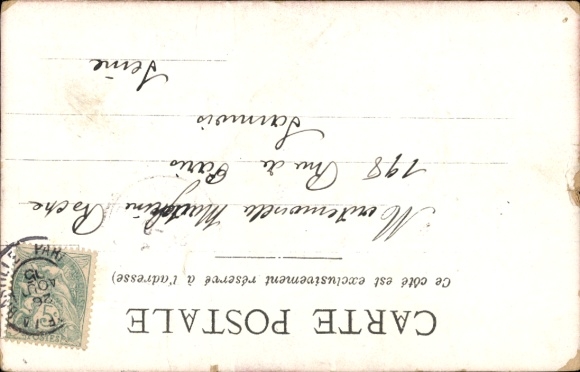 CARTE POSTALE
Ce côté est exclusivement réservé à l'adresse
Mademoiselle
198 Rue de Paris
Sannois
Seine
26
AOUT
05